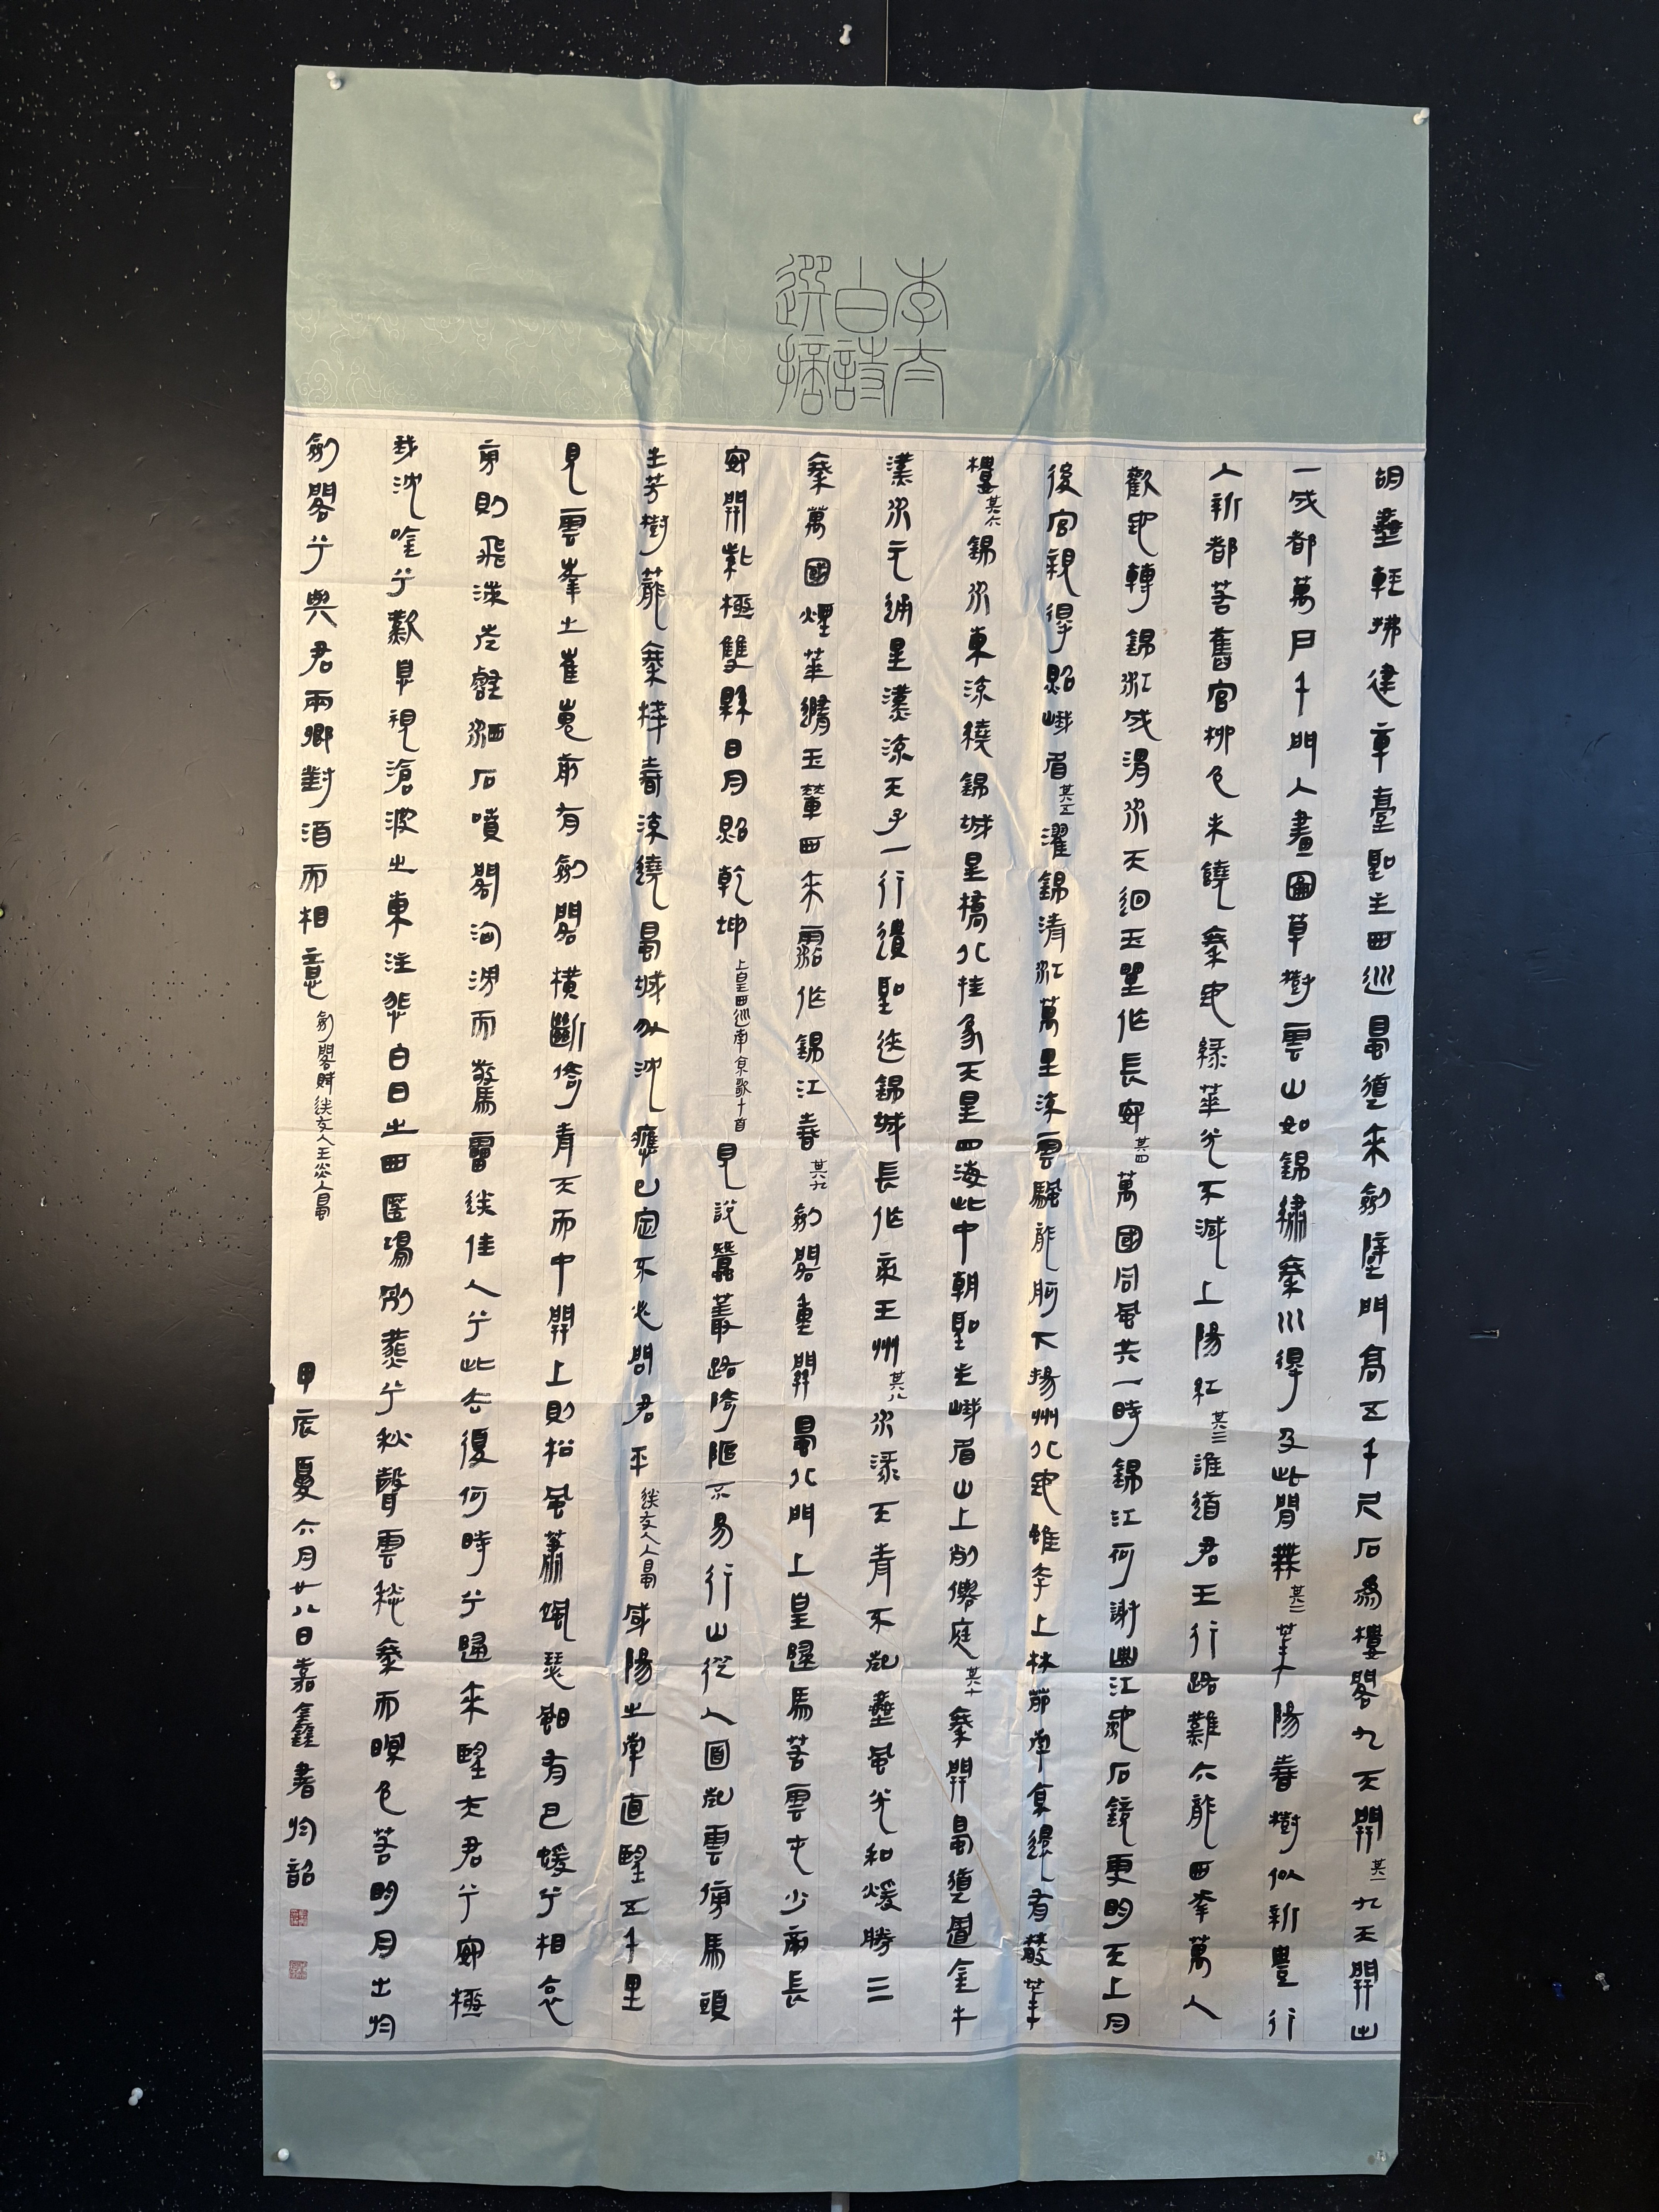 李太
白詩
選摘
胡塵輕拂建章臺聖主西巡蜀道來劍壁門高五千尺石為樓閣九天開其一九天開出
一成都萬戶千門入畫圖草樹雲山如錦繡秦川得及此間無其二華陽春樹似新豐行
入新都若舊宮柳色未饒秦地綠華光不減上陽紅其三誰道君王行路難六龍西幸萬人
歡地轉錦江成渭水天迴玉壘作長安其四萬國同風共一時錦江何謝曲江池石鏡更明天上月
後宮親得照峨眉其五濯錦清江萬里流雲帆龍舸下揚州北地雖夸上林苑南京還有散華
樓其六錦水東流繞錦城星橋北挂象天星四海此中朝聖主峨眉山上列僊庭其七秦開蜀道置金牛
漢水元通星漢流天子一行遺聖迹錦城長作帝王州其八水淥天青不起塵風光和煖勝三
秦萬國煙華隨玉輦西來添作錦江春其九劍閣重關蜀北門上皇歸馬若雲屯少帝長
安開紫極雙縣日月照乾坤上皇西巡南京歌十首見說蠶叢路崎嶇不易行山從人面起雲傍馬頭
生芳樹籠秦棧春流繞蜀城升沈應已定不必問君平送友人入蜀咸陽之南直望五千里
見雲峯之崔嵬前有劍閣橫斷倚青天而中開上則松風蕭颯瑟颶有巴猨兮相哀
旁則飛湍走壑灑石噴閣洶湧而驚雷送佳人兮此去復何時兮歸來望夫君兮安極
我沈吟兮歎息視滄波之東注悲白日之西匿鴻別燕兮秋聲雲愁秦而暝色若明月出於
劍閣兮與君兩鄉對酒而相憶劍閣賦送友人王炎入蜀甲辰夏六月廿八日嘉鑫書於韶